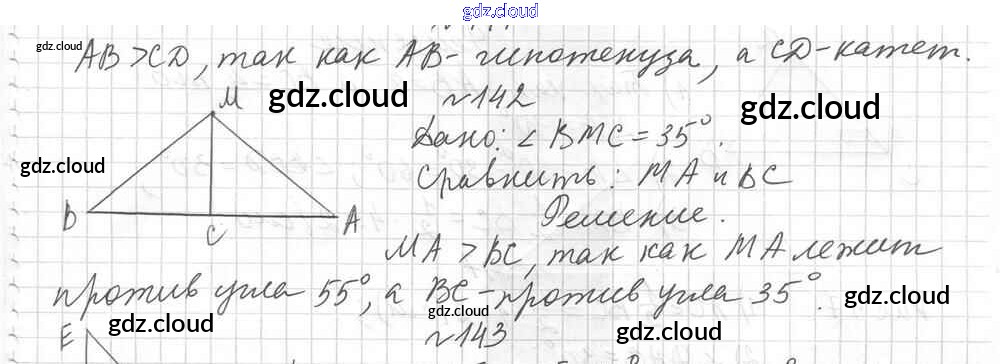 gdz.cloud
gdz.cloud
AB > CD, так как AB - гипотенуза, а CD - катет.
M
gdz.cloud
№142
gdz.cloud
Дано: ∠BMC = 35°.
gdz.cloud
Сравнить: MA и BC
B
C
A
Решение.
MA > BC, так как MA лежит
против угла 55°, а BC - против угла 35°.
gdz.cloud
gdz.cloud
E
№143
gdz.cloud